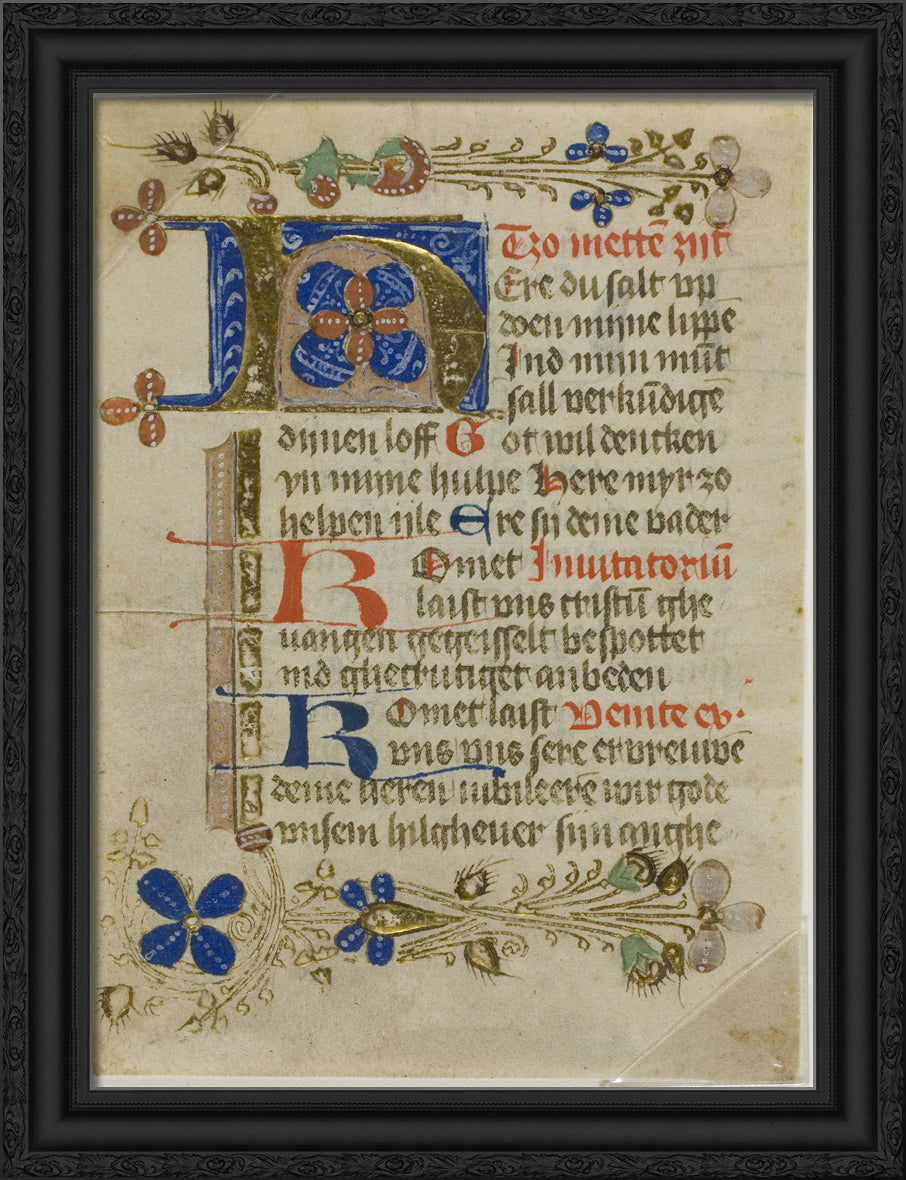 Tzo mettē zijt
HEre du salt vp
doen mijne lippe
Ind mijn mūt
sall verkūdige
dijnen loff Got wil dencken
yn mijne hulpe here myr zo
helpen ijle Ere sij deme vader
Komet Inuitatoriū
Klaist vns cristū ghe
uangen gegeisselt bespottet
ind ghecrutiget anbeden
Komet laist Venite ex·
vns vns sere ervreuwē
deme heren iubileerē wir gode
vnsem hilgheuer sijn anghe